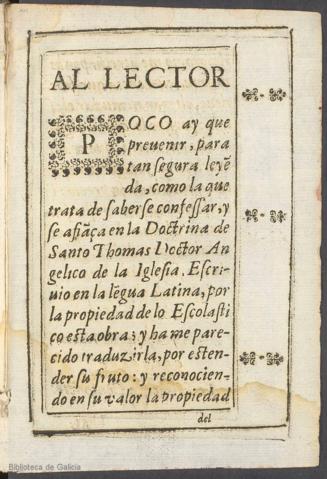 AL LECTOR
POCO ay que
preuenir, para
tan segura leyē
da, como la que
trata de saberse confessar, y
se afiāça en la Doctrina de
Santo Thomas Doctor An
gelico de la Iglesia. Escri-
uio en la lēgua Latina, por
la propiedad de lo Escolasti
co esta obra; y ha me pare-
cido traduzirla, por esten-
der su fruto: y reconocien-
do en su valor la propiedad
del
Biblioteca de Galicia